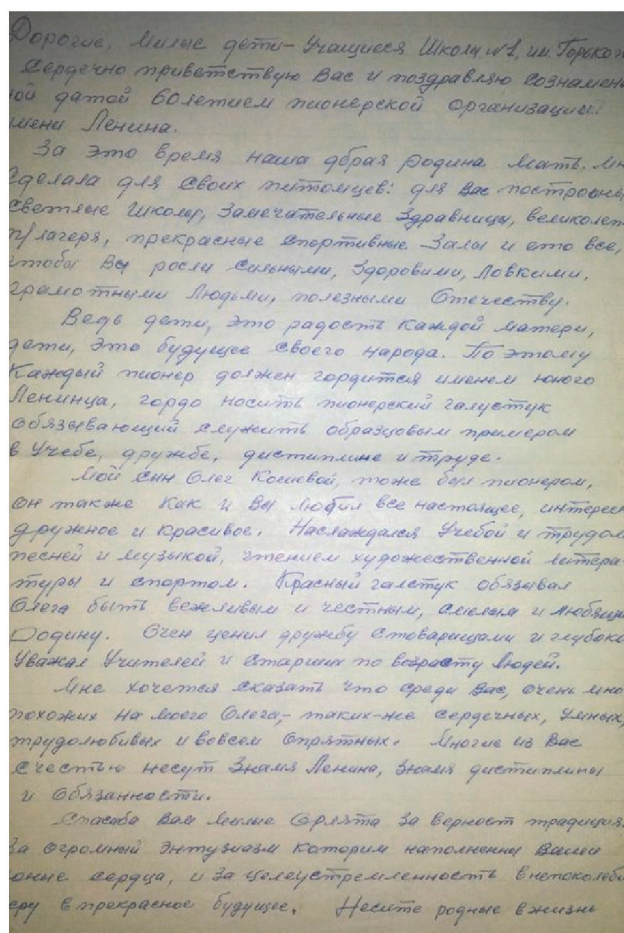 Дорогие, милые дети- учащиеся Школы №1, им. Горького
Сердечно приветствую Вас и поздравляю сознамен
ной датой 60летием пионерской организации
имени Ленина.
За это время наша добрая родина мать. мн
сделала для своих питомцев: для Вас построены
светлые Школы, замечательные здравницы, великолеп
п/лагеря, прекрасные спортивные залы и ето все,
чтобы Вы росли сильными, здоровими, ловкими,
грамотными людьми, полезными Отечеству.
Ведь дети, это радость каждой матери,
дети, это будущее своего народа. По этому
каждый пионер должен гордится именем юного
Ленинца, гордо носить пионерский галустук
обязывающий служить образцовым примером
в учебе, дружбе, дистиплине и труде.
Мой син Олег Кошевой, тоже был пионером,
он также как и Вы любил все настоящее, интерес
дружное и красивое. Наслаждался учебой и трудом
песней и музыкой, чтением художественной литера
туры и спортом. Красный галстук обязывал
Олега быть вежливым и честным, смелым и любящи
Родину. Очен ценил дружбу стоварищами и глубоко
уважал учителей и старших по возрасту людей.
Мне хочется сказать что среди Вас, очень мно
похожих на моего Олега,- таких-же сердечных, умных,
трудолюбивых и вовсем опрятных. Многие из Вас
счестью несут Знамя Ленина, знамя дистиплины
и обязанности.
Спасиба Вам милые орлята за верност традиция
За огромный энтузиазм которим наполненны Ваши
юные сердца, и за целеустремленность внепоколеби
веру в прекрасное будущее. Несите родные вжизнь